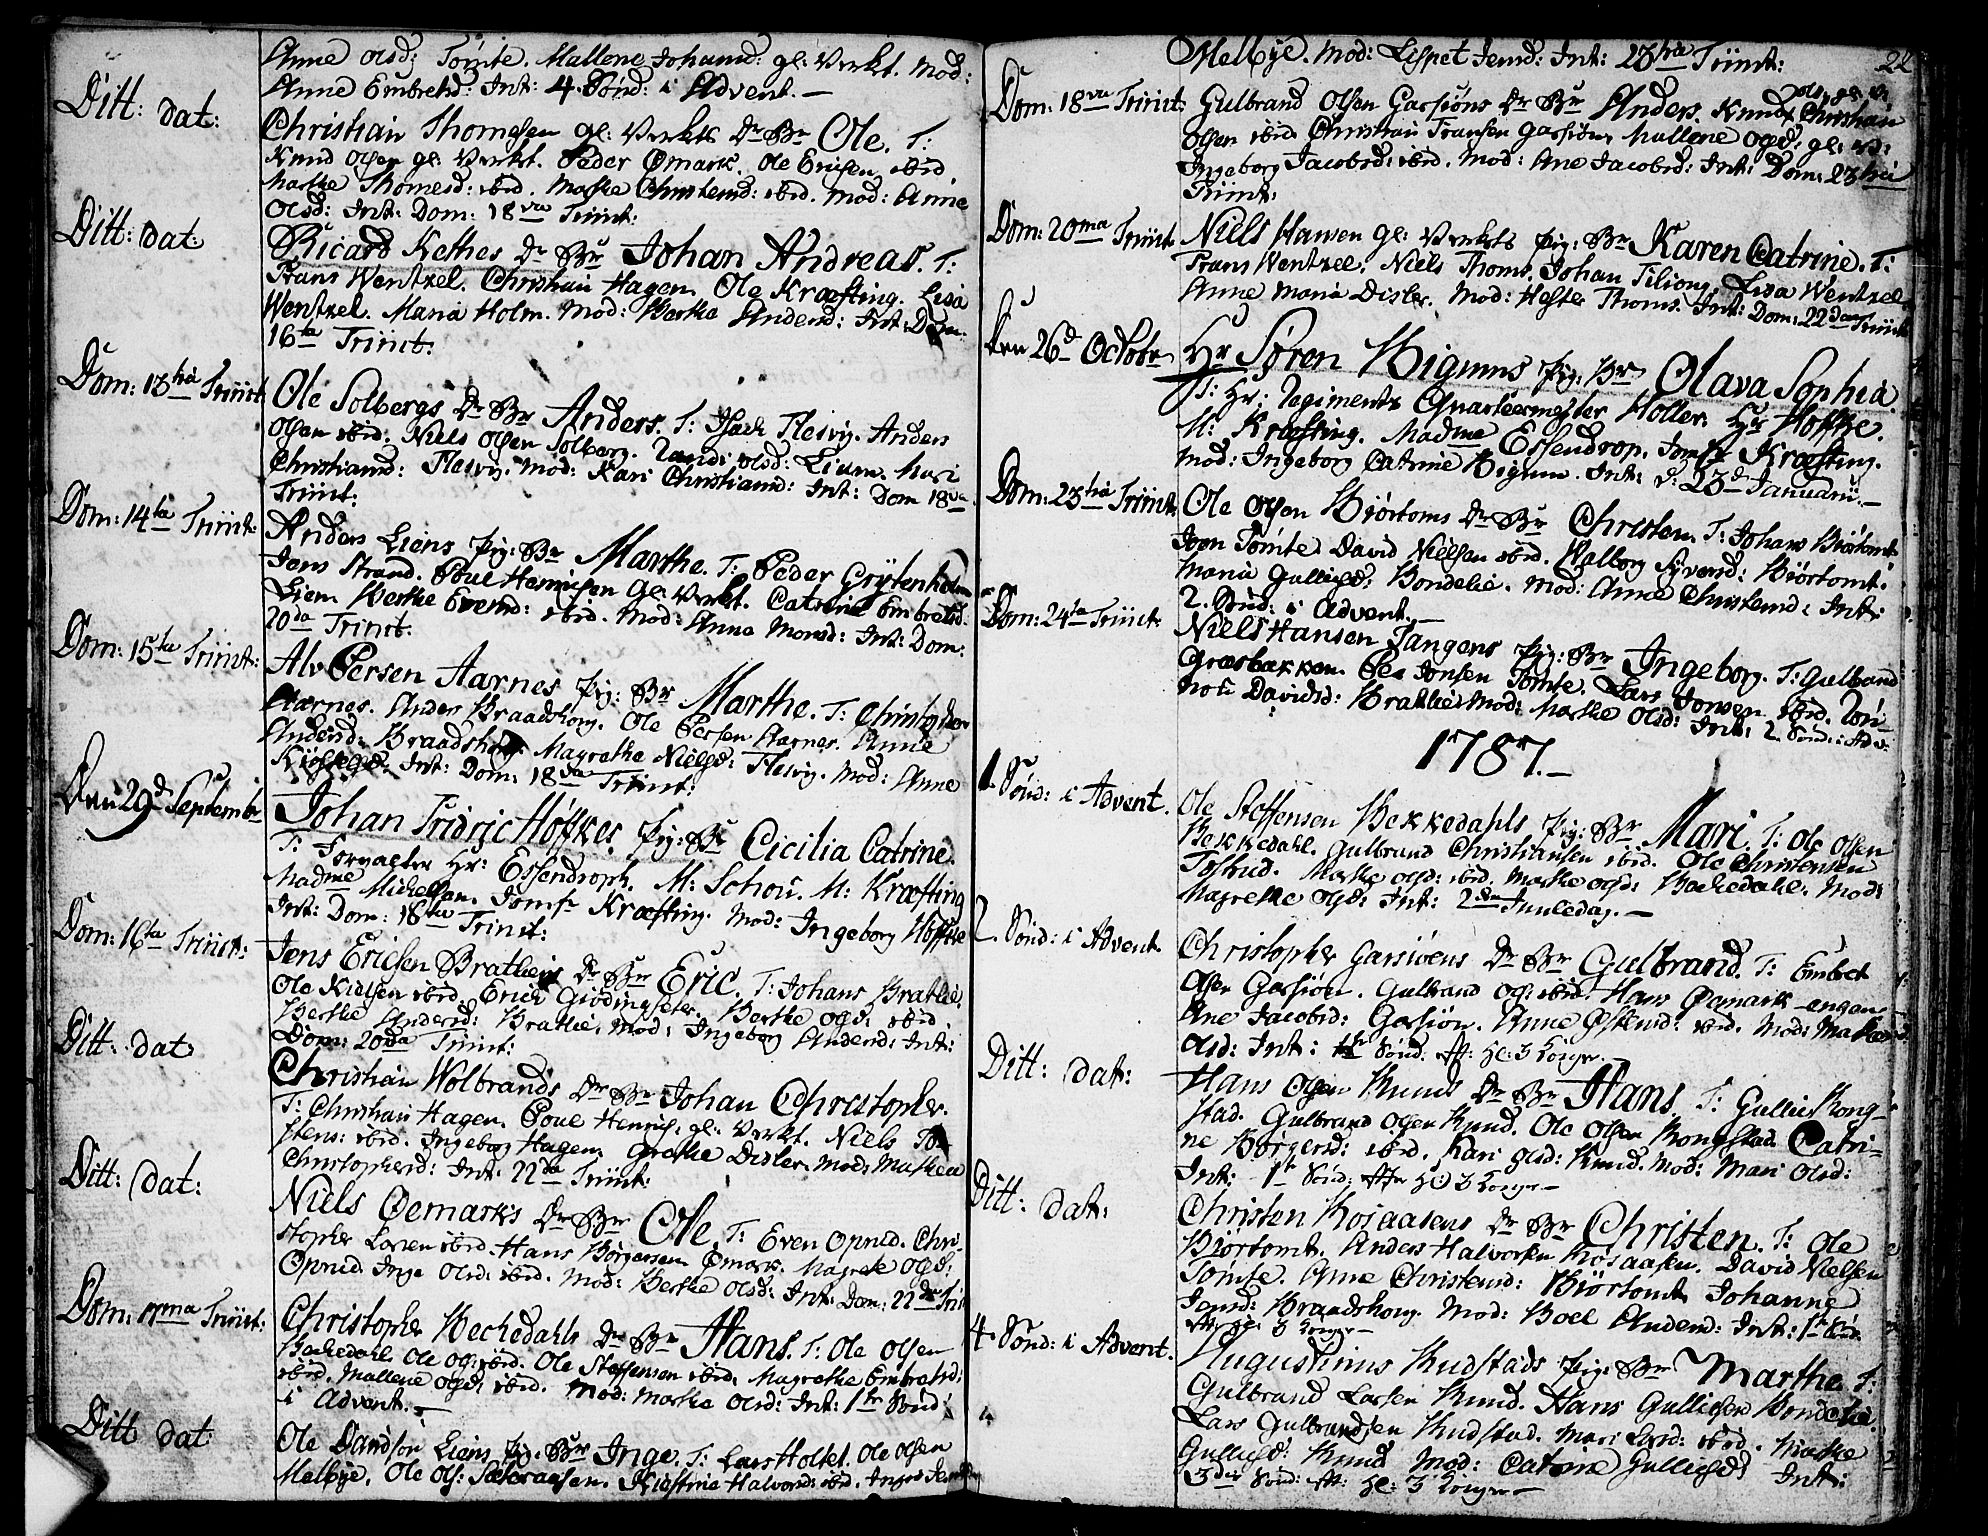 Anne Olsd: Tømte. Mallene Johansd: gl: Verket. Mod:
Anne Embretsd: Int: 4. Sønd: i Advent. —
Ditt: dat:
Christian Thomesen gl: Verkets Dr. Br Ole. T:
Knud Olsen gl: Verket. Peder Ømark. Ole Ericsen ibid
Marthe Thomesd: ibid. Marthe Christensd: ibid. Mod: Anne
Olsd: Int: Dom: 18va Trinit:
Ditt: dat:
Ricard Kethes Dr Br Johan Andreas. T:
Frans Wentzel. Christian Hagen. Ole Kræfting. Lisa
Wentzel. Maria Holm. Mod: Berthe Andersd: Int: Dom:
16ta Trinit:
Dom: 13tia Trinit
Ole Solbergs Dr Br Anders. T: Isach Flesvig. Anders
Olsen ibid. Niels Olsen Solberg. Randi Olsd: Lium. Mari
Christiansd: Flesvig. Mod: Kari Christiansd: Int: Dom 18va
Trinit:
Dom: 14ta Trinit:
Anders Liens pig: Br Marthe. T: Peder Grytenholm
Jens Strand. Poul Henrichsen gl: Verket. Catrine Embretsd:
Lien. Berthe Evensd: ibid. Mod: Anne Monsd: Int: Dom:
20da Trinit:
Dom: 15ta Trinit:
Alv Persen Aarnes pig: Br Marthe. T: Christopher
Aarnes. Anders Braadshoug. Ole Persen Aarnes. Anne
Andersd: Braadshoug Magrethe Nielsd: Flesvig. Mod: Anne
Int: Dom: 18da Trinit:
Den 29d Septembr
Johan Fridric Høfkes pig: Br Cicilia Catrine.
T: Forvalter Hr: Essendroph. M: Schou. M: Kræfting
Madme Michelsen. Jomfr Kræfting. Mod: Ingeborg Høffke
Int: Dom: 18ta Trinit:
Dom: 16ta Trinit:
Jens Ericsen Bratliens Dr Br Eric. T: Johans Bratlie.
Ole Nielsen ibid. Erich Giødingsæter. Berthe Olsd: ibid
Berthe Andersd: Bratlie. Mod: Ingeborg Andersd: Int:
Dom: 20da Trinit:
Ditt: dat
Christian Wolbrands Dr Br Johan Christopher.
T: Christian Hagen. Poul Henrich: gl: Verket. Niels
Stens: ibid. Ingeborg Hagen. Grethe Disler. Mod: Mathea
Christophersd: Int: 22da Trinit:
Ditt: dat:
Niels Oemarks Dr Br Ole. T: Even Opnid. Chri-
stopher Larsen ibid. Hans Børgersen Ømark. Magrete Olsd:
Opnid. Inge Olsd: ibid. Mod: Berthe Olsd: Int: Dom: 22da Trit
Dom: 17ma Trinit:
Christopher Bechedahls Dr Br Hans. T: Ole Olsen
Bechedahl. Ole Ols: ibid. Ole Steffensen ibid. Magrethe Embretsd:
ibid. Mallene Olsd: ibid. Mod: Marthe Olsd: Int: 1ste Sønd:
i Advent. —
Ditt dat
Ole Davidsen Liens pig: Br Inge. T: Lars Holtet. Ole Olsen
Melbye. Ole Ols: Kiestine Halvorsd: ibid. Inger
22
Melbye. Mod: Lispet Jensd: Int: 23tia Trinit:
Dom: 18va Trinit:
Gulbrand Olsen Garsiøns Dr Br Anders. Knud Ols: gl: V: Christian
Olsen ibid. Christian Fransen Garsiøn. Mallene Olsd: gl: V:
Ingeborg Jacobsd: ibid. Mod: Ane Jacobsd: Int: Dom: 23tia
Trinit:
Dom: 20ma Trinit
Niels Hansen gl: Verkets pig: Br Karen Catrine. T:
Frans Wentzel. Niels Thoms. Johan Tiliong. Lisa Wentzel.
Anne Maria Disler. Mod: Hester Thoms. Int: Dom: 22da Trinit
Den 26d Octobr
Hr Søren Bigums pig: Br Olava Sophia
T: Hr: Regiments Quarteermester Holler. Hr Høffke.
M: Kræfting. Madme Essendrop. Jomfr Kræfting.
Mod: Ingeborg Catrine Bigum. Int: d: 23d Januarii. —
Dom: 23tia Trinit:
Ole Olsen Biørtoms Dr Br Christen. T: Johans Biørtomt
Joen Tømte. David Nielsen ibid. Walborg Syversd: Biørtomt.
Maria Gullichsd: Bondelie. Mod: Anne Christensd: Int:
2. Sønd: i Advent. —
Dom: 24ta Trinit:
Niels Hansen Tangens pig: Br Ingeborg. T: Gulbrand
Græsbakken. Peder Jonsen Tømte. Lars Jonsen ibid. Ron-
noU Davidsd: Bratlie. Mod: Marthe Olsd: Int: 2 Sønd: i Adv:
1787. —
1. Sønd: i Advent.
Ole Steffensen Bekkedahls pig: Br Mari. T: Ole Olsen
Bekkedahl. Gulbrand Christiansen ibid. Ole Christensen
Tostrud. Marthe Olsd: ibid. Marthe Olsd: Bechedahl. Mod:
Magrethe Olsd: Int: 2den Juuledag. —
2. Sønd: i Advent.
Christopher Garsiøens Dr Br Gulbrand. T: Embret
Olsen Garsiøn. Gulbrand Ols: ibid. Hans Oemark-engen
Ane Jacobsd: Garsiøn. Anne Østensd: ibid. Mod: Marthe
Olsd: Int: 1ste Sønd: eft: He: 3 Konger. —
Ditt: dat:
Hans Olsen Knuds Dr Br Hans. T: Gullie Kong-
stad. Gulbrand Olsen Knud. Ole Olsen Kongstad. Catri-
ne Børgersd: ibid. Kari Olsd: Knud. Mod: Mari Olsd:
Int: 1ste Sønd: eftr He: 3 Konger —
Ditt: dat:
Christen Rosaasens Dr Br Christen. T: Ole
Biørtomt. Anders Halvorsen Rosaasen. David Nielsen
Tømte. Anne Christensd: Biørtomt. Johanne
Jensd: Braadshoug. Mod: Boel Andersd: Int: 1ste Sønd:
eftr He: 3 Konger —
4. Sønd: i Advent.
Augustinus Rudstads pig: Br Marthe. T:
Gulbrand Larsen Knud. Hans Gullichsen Bondelie.
Lars Gulbrandsen Rudstad. Mari Larsd: ibid. Marthe
Gullichsd: Knud Mod: Catrine Gullichsd: Int:
3die Sønd: eft: He: 3 Konger —